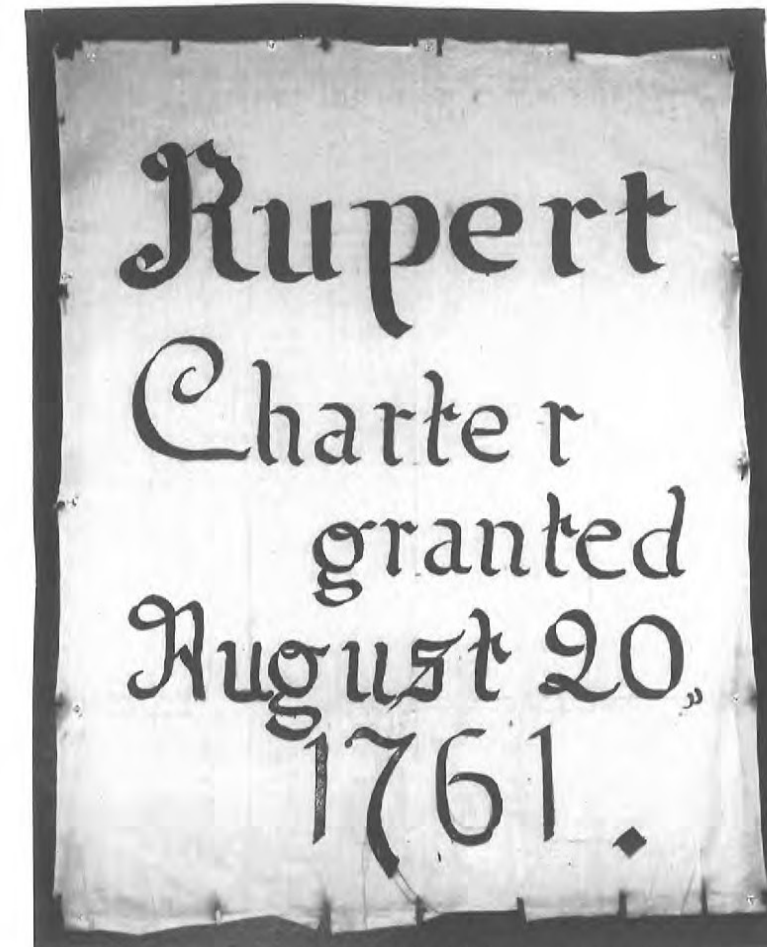 Rupert
Charter
granted
August 20,,
1761.